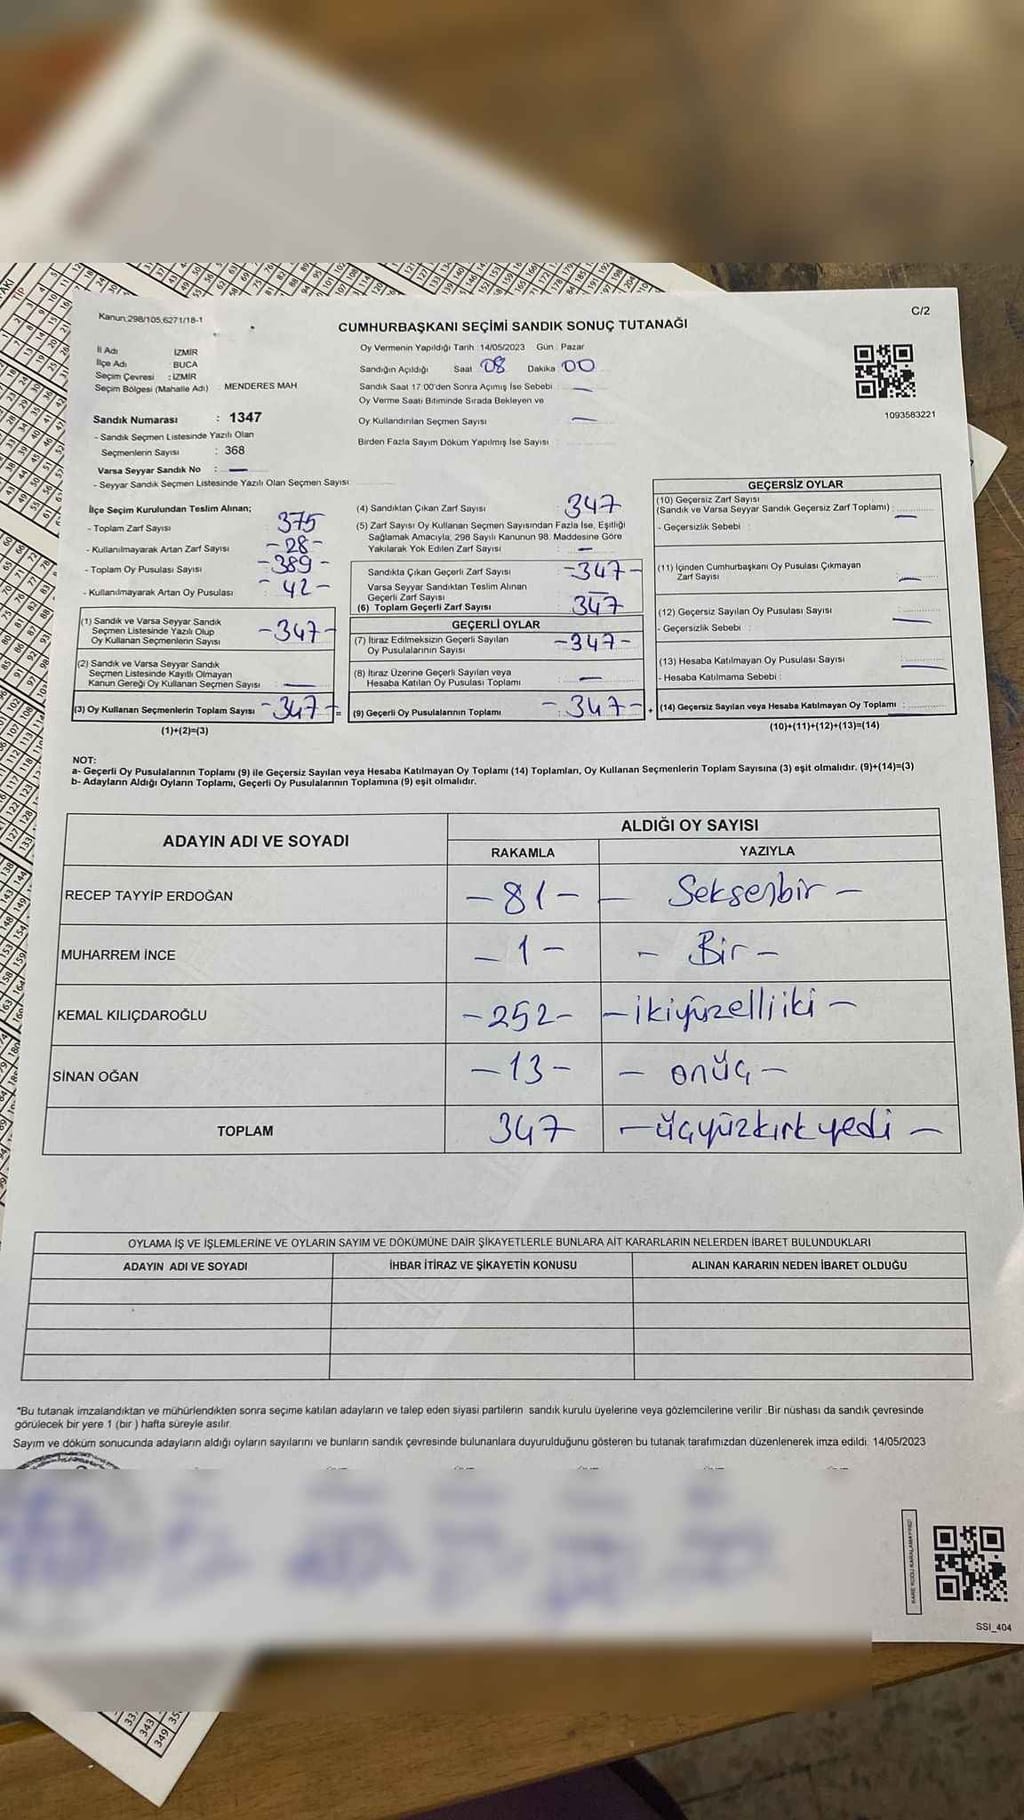 Kanun;298/105,6271/18-1
C/2
CUMHURBAŞKANI SEÇİMİ SANDIK SONUÇ TUTANAĞI
İl Adı İZMİR
İlçe Adı BUCA
Seçim Çevresi : İZMİR
Seçim Bölgesi (Mahalle Adı) MENDERES MAH
Sandık Numarası : 1347
- Sandık Seçmen Listesinde Yazılı Olan
Seçmenlerin Sayısı : 368
Varsa Seyyar Sandık No : —
- Seyyar Sandık Seçmen Listesinde Yazılı Olan Seçmen Sayısı
Oy Vermenin Yapıldığı Tarih 14/05/2023 Gün : Pazar
Sandığın Açıldığı Saat 08 Dakika 00
Sandık Saat 17 00'den Sonra Açımış İse Sebebi : —
Oy Verme Saati Bitiminde Sırada Bekleyen ve
Oy Kullandırılan Seçmen Sayısı —
Birden Fazla Sayım Döküm Yapılmış İse Sayısı
1093583221
İlçe Seçim Kurulundan Teslim Alınan;
- Toplam Zarf Sayısı 375
- Kullanılmayarak Artan Zarf Sayısı -28-
- Toplam Oy Pusulası Sayısı -389-
- Kullanılmayarak Artan Oy Pusulası : -42-
(1) Sandık ve Varsa Seyyar Sandık
Seçmen Listesinde Yazılı Olup
Oy Kullanan Seçmenlerin Sayısı -347-
(2) Sandık ve Varsa Seyyar Sandık
Seçmen Listesinde Kayıtlı Olmayan
Kanun Gereği Oy Kullanan Seçmen Sayısı : —
(3) Oy Kullanan Seçmenlerin Toplam Sayısı -347-
(1)+(2)=(3)
(4) Sandıktan Çıkan Zarf Sayısı : 347
(5) Zarf Sayısı Oy Kullanan Seçmen Sayısından Fazla İse, Eşitliği
Sağlamak Amacıyla, 298 Sayılı Kanunun 98. Maddesine Göre
Yakılarak Yok Edilen Zarf Sayısı : —
Sandıkta Çıkan Geçerli Zarf Sayısı : -347-
Varsa Seyyar Sandıktan Teslim Alınan
Geçerli Zarf Sayısı : —
(6) Toplam Geçerli Zarf Sayısı : 347
GEÇERLİ OYLAR
(7) İtiraz Edilmeksizin Geçerli Sayılan
Oy Pusulalarının Sayısı -347-
(8) İtiraz Üzerine Geçerli Sayılan veya
Hesaba Katılan Oy Pusulası Toplamı : —
= (9) Geçerli Oy Pusulalarının Toplamı : -347-
GEÇERSİZ OYLAR
(10) Geçersiz Zarf Sayısı
(Sandık ve Varsa Seyyar Sandık Geçersiz Zarf Toplamı) : —
- Geçersizlik Sebebi :
(11) İçinden Cumhurbaşkanı Oy Pusulası Çıkmayan
Zarf Sayısı : —
(12) Geçersiz Sayılan Oy Pusulası Sayısı : —
- Geçersizlik Sebebi :
(13) Hesaba Katılmayan Oy Pusulası Sayısı : —
- Hesaba Katılmama Sebebi :
+ (14) Geçersiz Sayılan veya Hesaba Katılmayan Oy Toplamı :
(10)+(11)+(12)+(13)=(14)
NOT:
a- Geçerli Oy Pusulalarının Toplamı (9) ile Geçersiz Sayılan veya Hesaba Katılmayan Oy Toplamı (14) Toplamları, Oy Kullanan Seçmenlerin Toplam Sayısına (3) eşit olmalıdır. (9)+(14)=(3)
b- Adayların Aldığı Oyların Toplamı, Geçerli Oy Pusulalarının Toplamına (9) eşit olmalıdır.
ADAYIN ADI VE SOYADI
ALDIĞI OY SAYISI
RAKAMLA YAZIYLA
RECEP TAYYİP ERDOĞAN -81- - Seksenbir -
MUHARREM İNCE - 1 - - Bir -
KEMAL KILIÇDAROĞLU -252- -ikiyüzelliiki -
SİNAN OĞAN -13- - onüç -
TOPLAM 347 -üçyüzkırkyedi -
OYLAMA İŞ VE İŞLEMLERİNE VE OYLARIN SAYIM VE DÖKÜMÜNE DAİR ŞİKAYETLERLE BUNLARA AİT KARARLARIN NELERDEN İBARET BULUNDUKLARI
ADAYIN ADI VE SOYADI İHBAR İTİRAZ VE ŞİKAYETİN KONUSU ALINAN KARARIN NEDEN İBARET OLDUĞU
*Bu tutanak imzalandıktan ve mühürlendikten sonra seçime katılan adayların ve talep eden siyasi partilerin sandık kurulu üyelerine veya gözlemcilerine verilir .Bir nüshası da sandık çevresinde
görülecek bir yere 1 (bir ) hafta süreyle asılır.
Sayım ve döküm sonucunda adayların aldığı oyların sayılarını ve bunların sandık çevresinde bulunanlara duyurulduğunu gösteren bu tutanak tarafımızdan düzenlenerek imza edildi. 14/05/2023
SSI_404